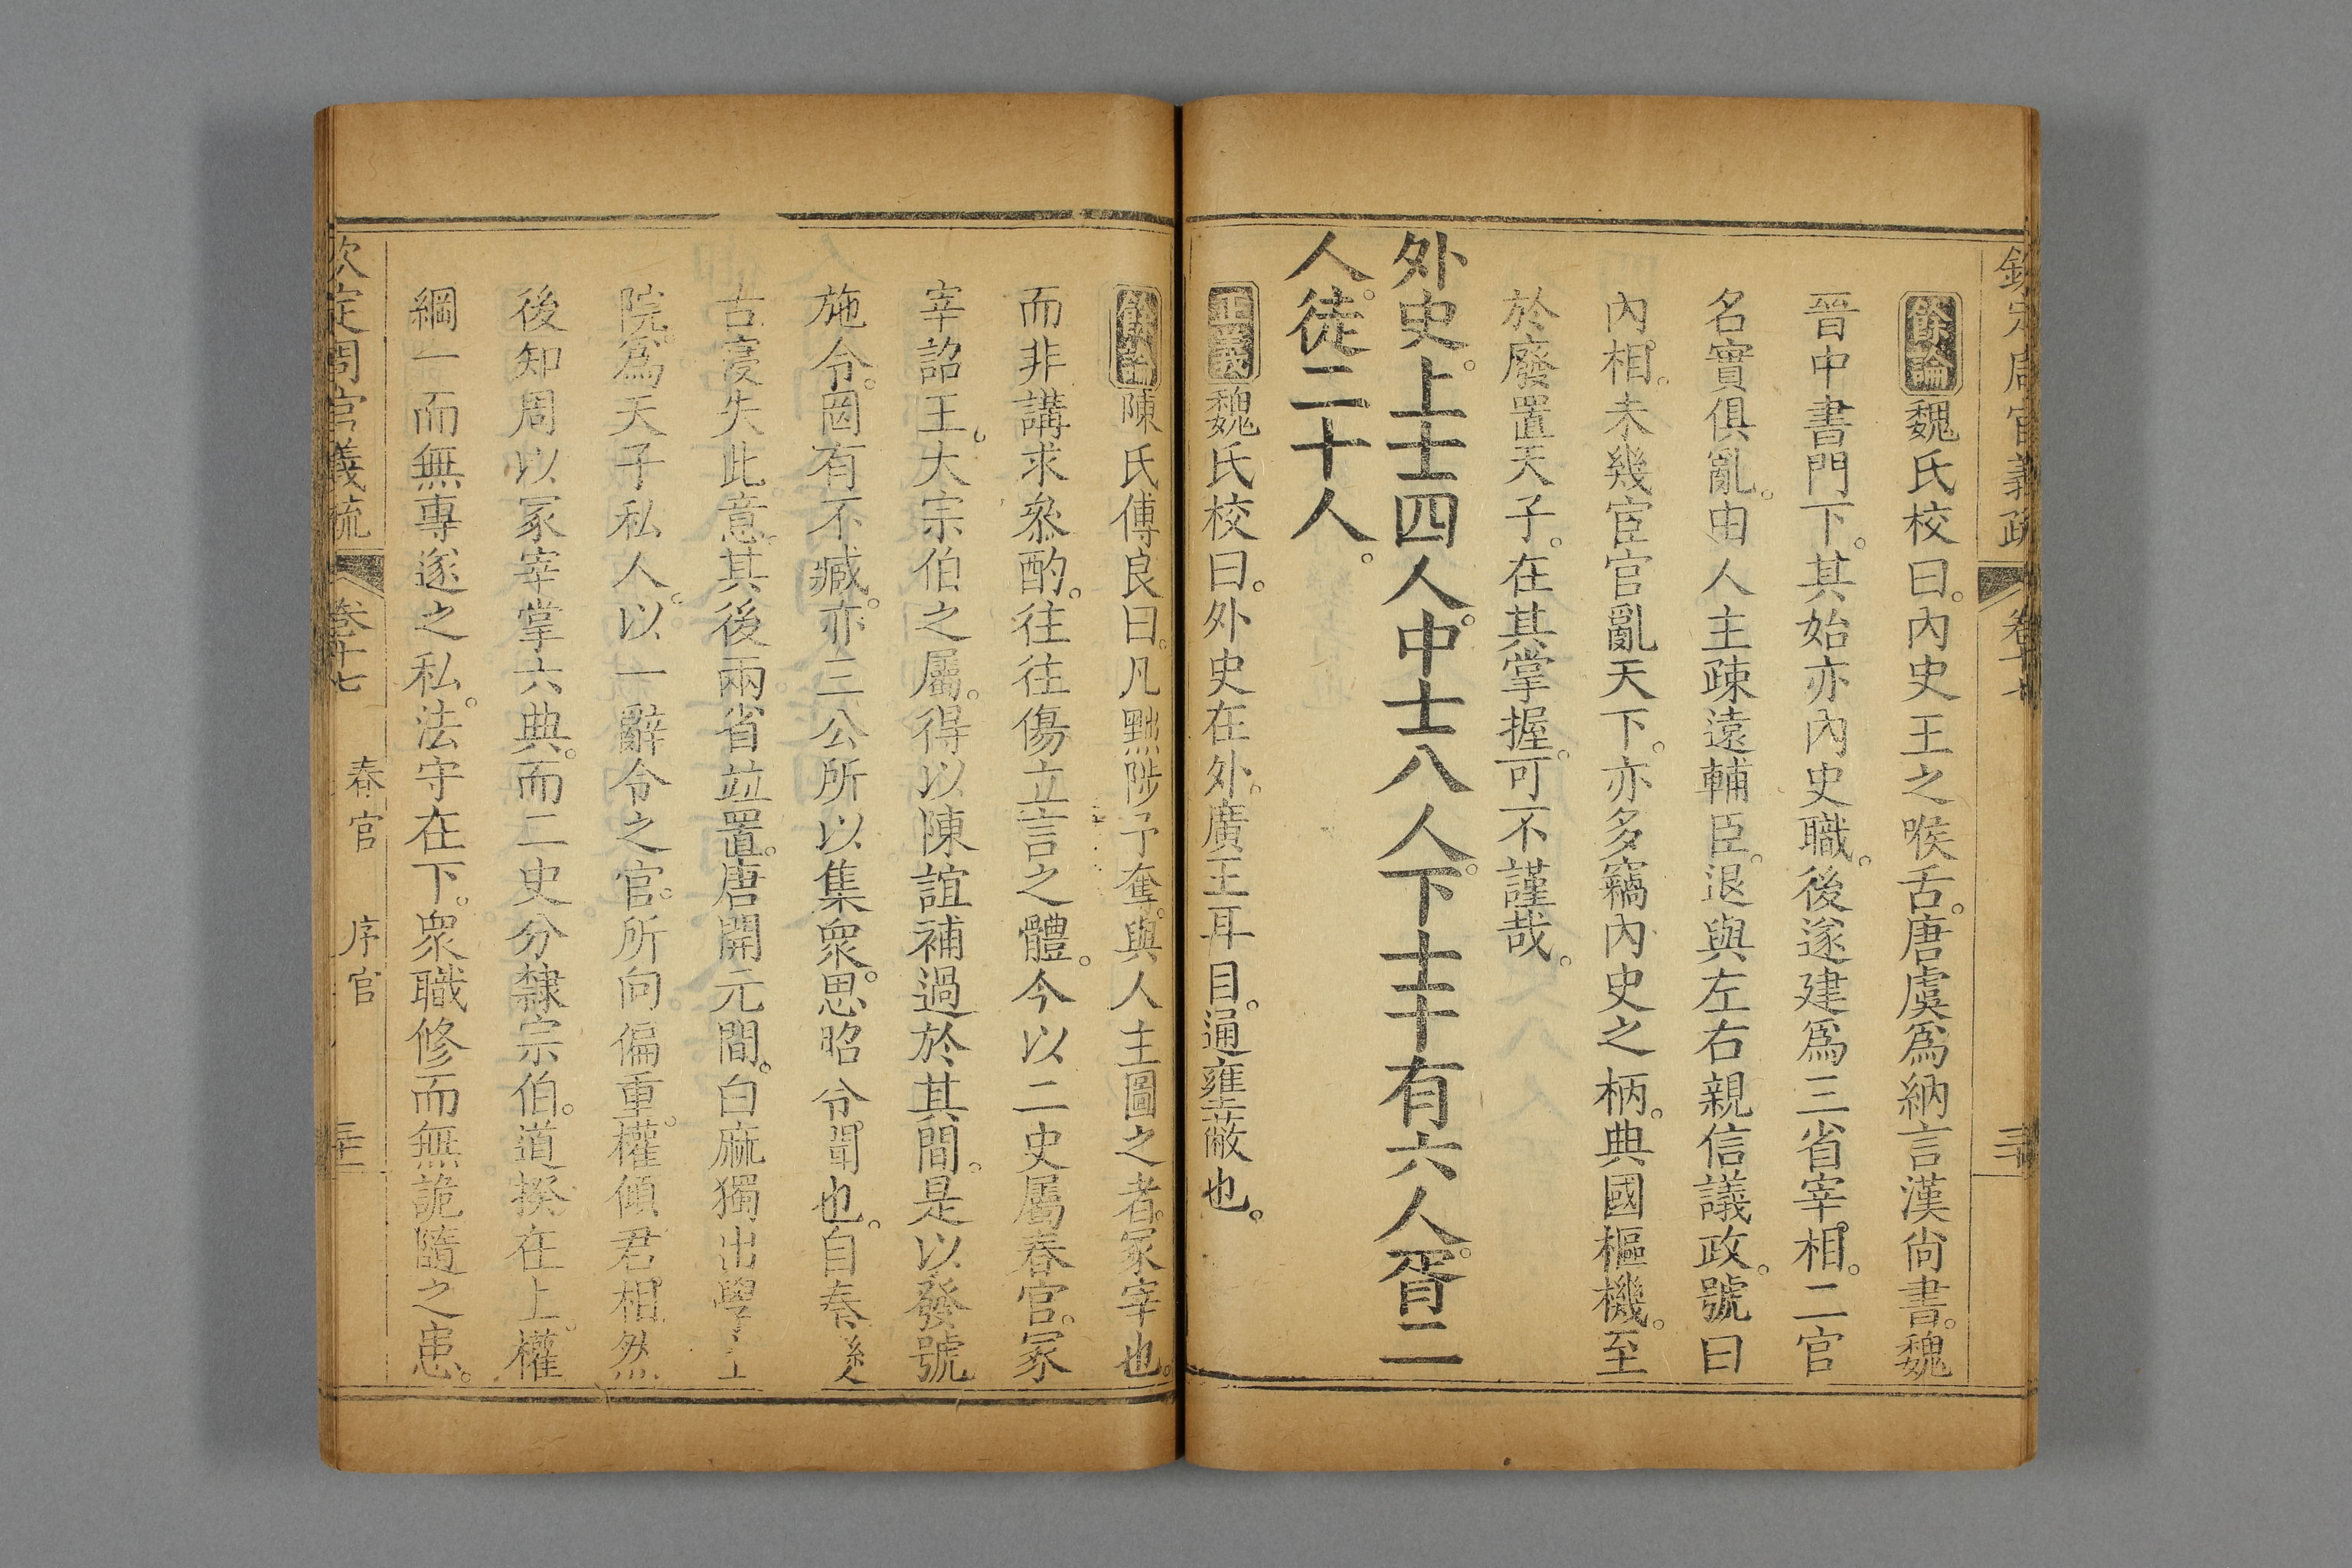 欽定周官義疏 卷十七
餘論魏氏校曰。內史王之喉舌。唐虞爲納言漢尙書。魏
晉中書門下。其始亦內史職。後遂建爲三省宰相。二官
名實俱亂。由人主疎遠輔臣。退與左右親信議政。號曰
內相。未幾宦官亂天下。亦多竊內史之柄。典國樞機。至
於廢置天子。在其掌握。可不謹哉。
外史。上士四人。中士八人。下士十有六人。胥二
人。徒二十人。
正義魏氏校曰。外史在外。廣王耳目。通壅蔽也。
餘論陳氏傅良曰。凡黜陟予奪。與人主圖之者。冢宰也。
而非講求叅酌。往往傷立言之體。今以二史屬春官。冢
宰詔王。大宗伯之屬。得以陳誼補過於其間。是以發號
施令。罔有不臧。亦三公所以集衆思昭令聞也。自秦
古寖失此意。其後兩省竝置。唐開元間。白麻獨出學士
院。爲天子私人。以一辭令之官。所向偏重。權傾君相。然
後知周以冢宰掌六典。而二史分隸宗伯。道揆在上。權
綱一而無專遂之私。法守在下。衆職修而無詭隨之患。
欽定周官義疏 卷十七 春官 序官